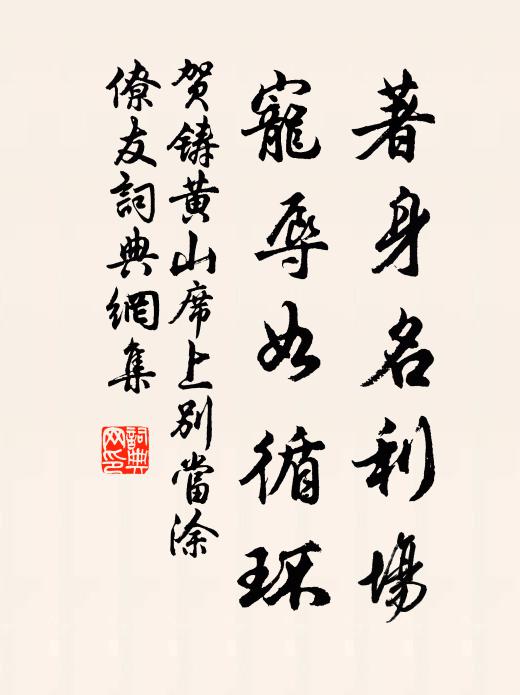 著身名利場
寵辱如循环
贺鑄黄山席上别當涂
僚友詞典網集
詞典网印